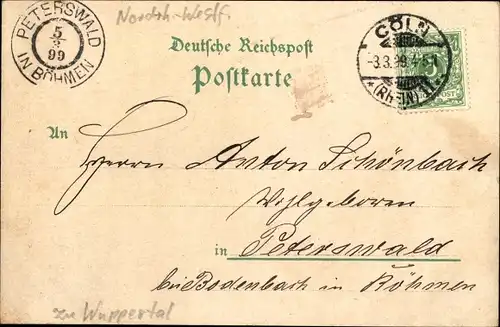 PETERSWALD
5
3
99
IN BÖHMEN
Nordrh-Westf.
Deutsche Reichspost
Postkarte
CÖLN
-3.3.99.4-5
(Rhein)
An
Herrn Anton Schönbach
Wohlgeboren
in Peterswald
bei Bodenbach in Böhmen
zu Wuppertal